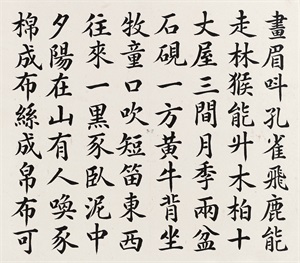 畫眉叫孔雀飛鹿能
走林猴能升木柏十
丈屋三間月季兩盆
石硯一方黃牛背坐
牧童口吹短笛東西
往來一黑豕臥泥中
夕陽在山有人喚豕
棉成布絲成帛布可